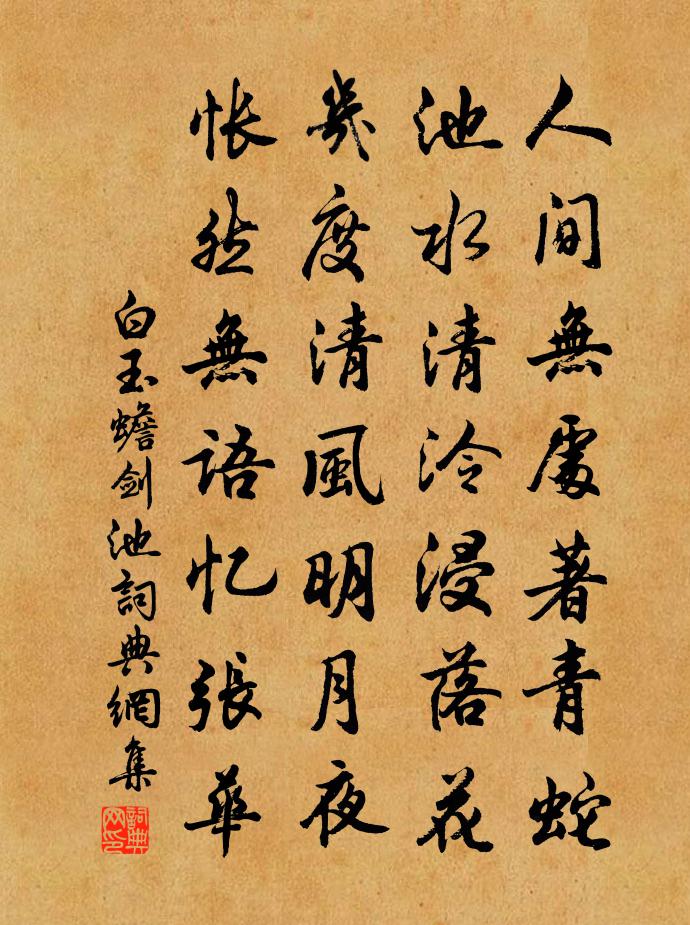 人間無處著青蛇
池水清泠浸落花
幾度清風明月夜
悵然無語忆張華
白玉蟾剑池詞典網集
詞典网印